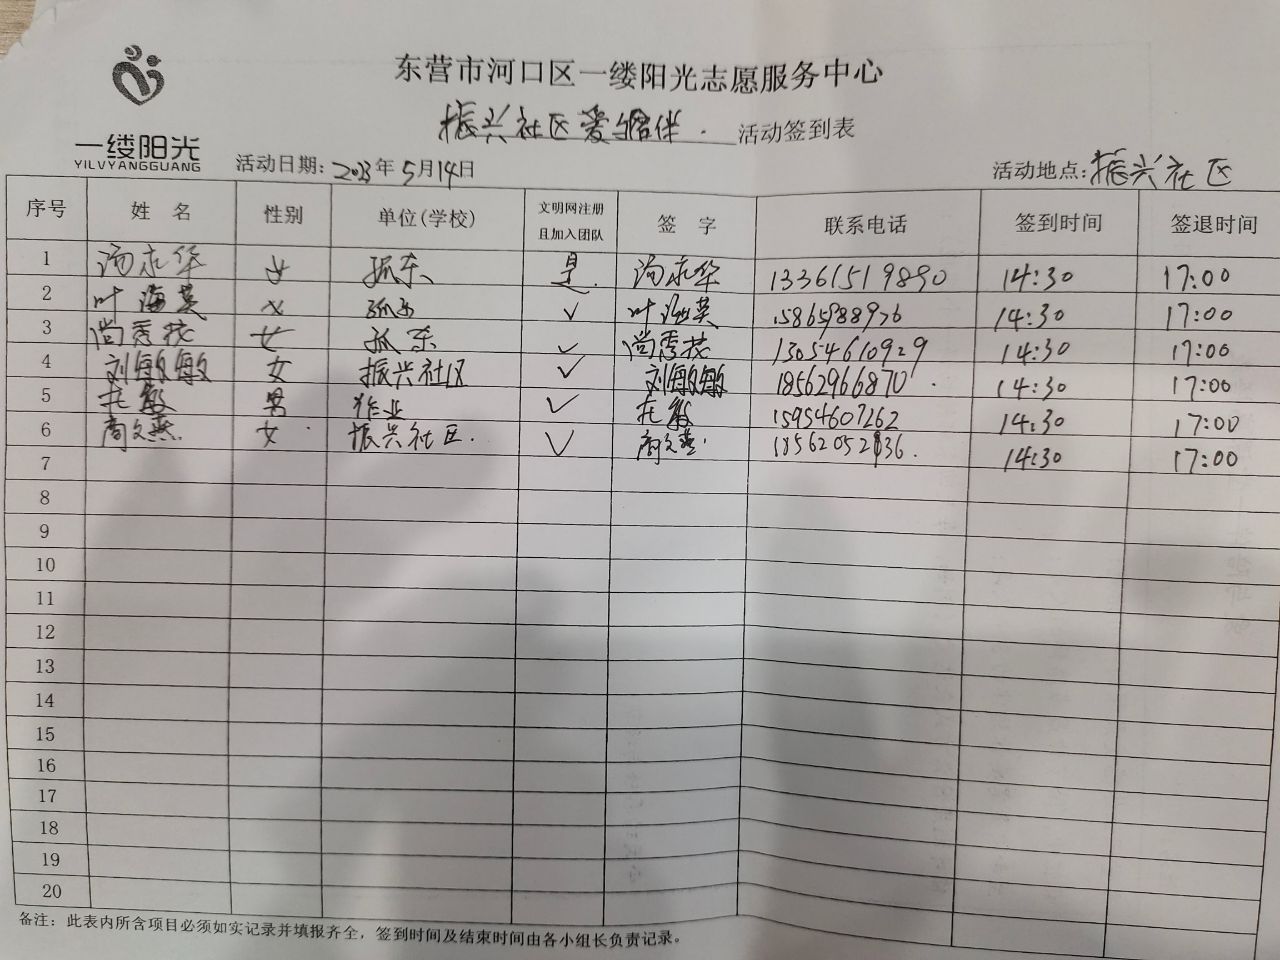 东营市河口区一缕阳光志愿服务中心
振兴社区爱与陪伴 活动签到表
一缕阳光
YILVYANGGUANG
活动日期: 2023年5月14日 活动地点: 振兴社区
序号 姓 名 性别 单位(学校) 文明网注册且加入团队 签 字 联系电话 签到时间 签退时间
1 汤永华 女 孤东 是 汤永华 13361519890 14:30 17:00
2 叶海英 女 孤东 ✓ 叶海英 15865988976 14:30 17:00
3 尚秀 女 孤东 ✓ 尚秀 13054610929 14:30 17:00
4 刘敏敏 女 振兴社区 ✓ 刘敏敏 18562966870 14:30 17:00
5 男 作业 ✓ 15954607262 14:30 17:00
6 商文燕 女 振兴社区 ✓ 商文燕 18562052136 14:30 17:00
7
8
9
10
11
12
13
14
15
16
17
18
19
20
备注: 此表内所含项目必须如实记录并填报齐全, 签到时间及结束时间由各小组长负责记录。